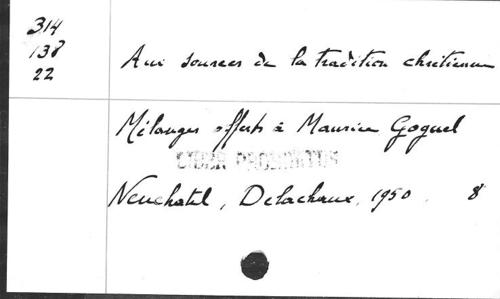 314
138
22
Aux sources de la tradition chrétienne
Mélanges offerts à Maurice Goguel
Neuchatel, Delachaux, 1950. 8